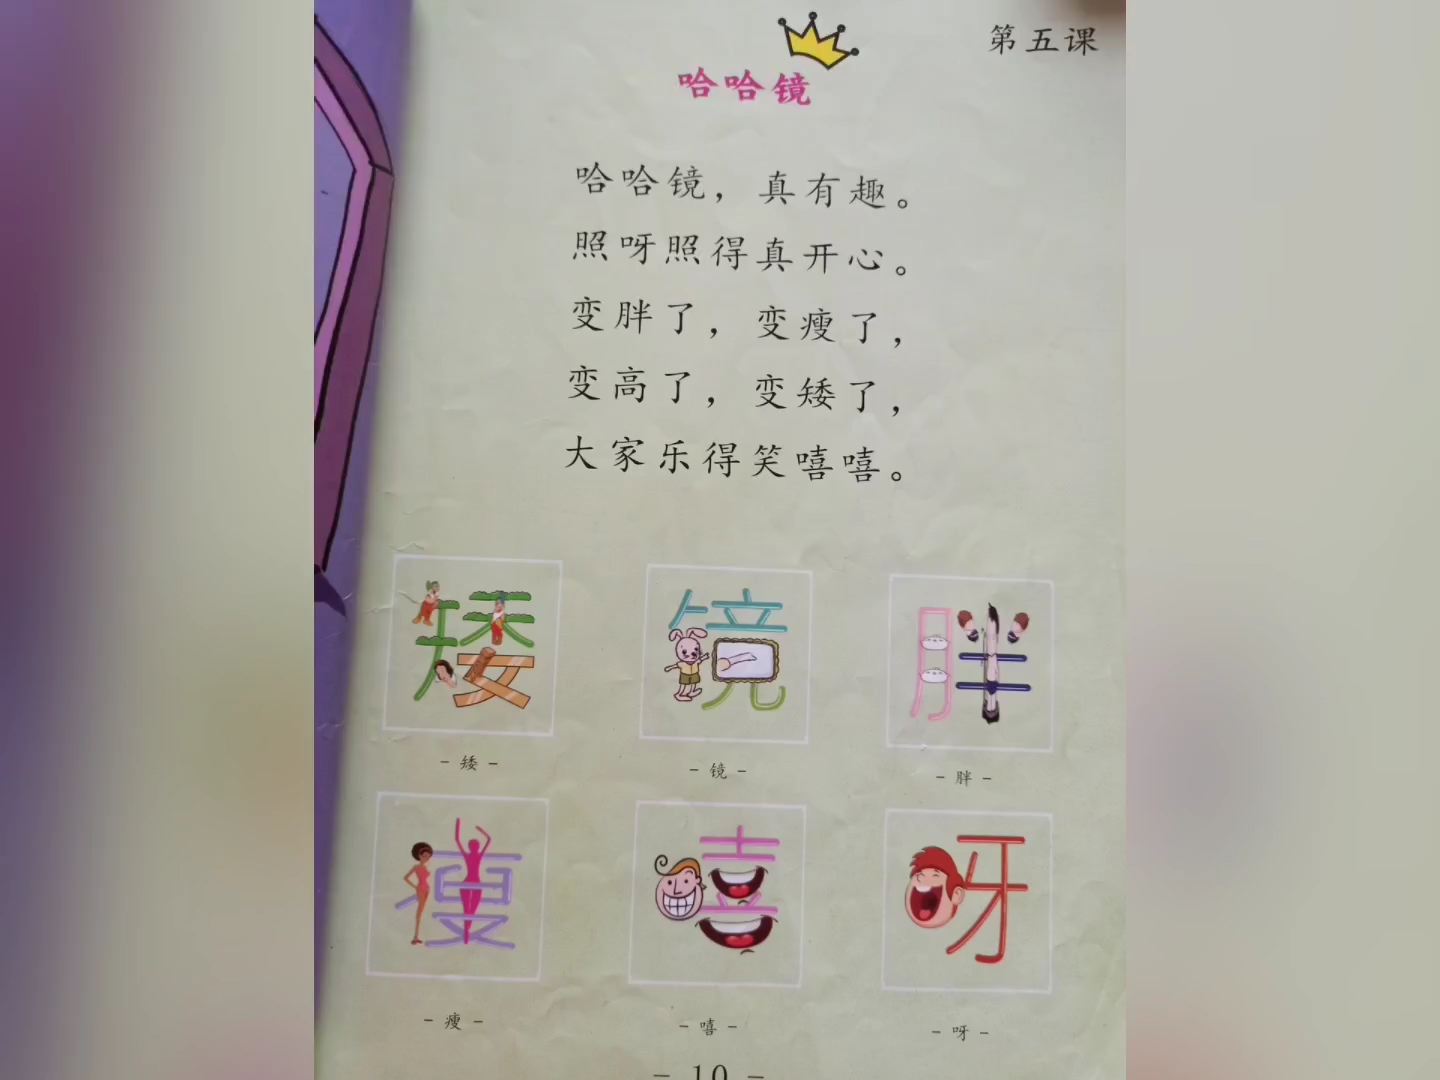 第五课
哈哈镜
哈哈镜，真有趣。
照呀照得真开心。
变胖了，变瘦了，
变高了，变矮了，
大家乐得笑嘻嘻。
矮 镜 胖
-矮- -镜- -胖-
瘦 嘻 呀
-瘦- -嘻- -呀-
-10-